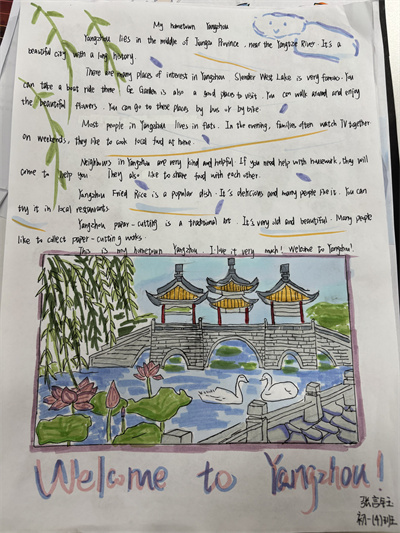 My hometown Yangzhou
Yangzhou lies in the middle of Jiangsu Province, near the Yangtze River. It's a
beautiful city with a long history.
There are many places of interest in Yangzhou. Slender West Lake is very famous. You
can take a boat ride there. Ge Garden is also a good places to visit. You can walk around and enjoy
the beautiful flowers. You can go to these places by bus or by bike.
Most people in Yangzhou lives in flats. In the evening, families often watch TV together
on weekends, they like to cook local food at home.
Neighbours in Yangzhou are very kind and helpful. If you need help with housework, they will
come to help you. They also like to share food with each other.
Yangzhou Fried Rice is a popular dish. It's delicious and many people like it. You can
try it in local restaurants.
Yangzhou paper-cutting is a traditional art. It's very old and beautiful. Many people
like to collect paper-cutting works.
This is my hometown Yangzhou. I like it very much! Welcome to Yangzhou!
Welcome to Yangzhou!
初一(4)班